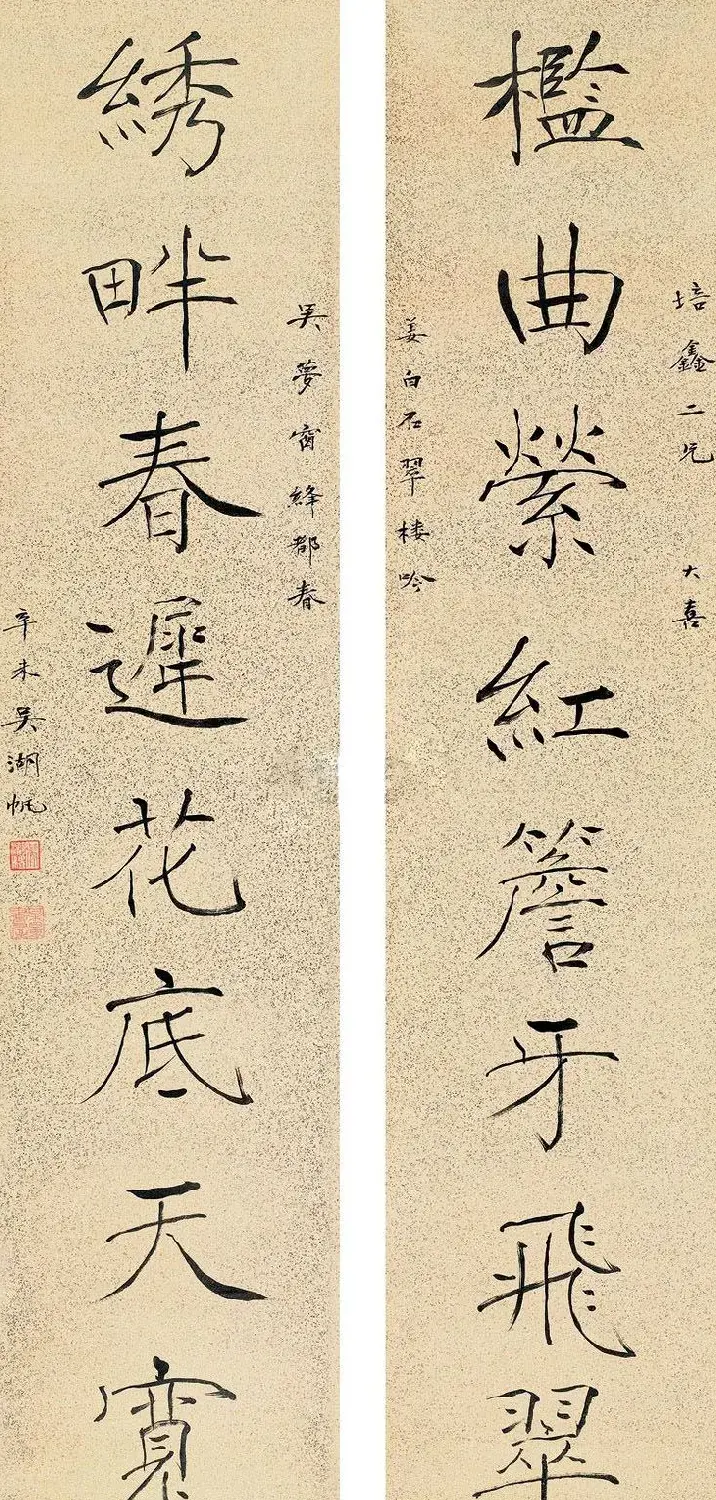 培鑫二兄 大喜
檻曲縈紅簷牙飛翠
姜白石翠樓吟
吴夢窗絳都春
綉畔春遲花底天寬
辛未吴湖帆